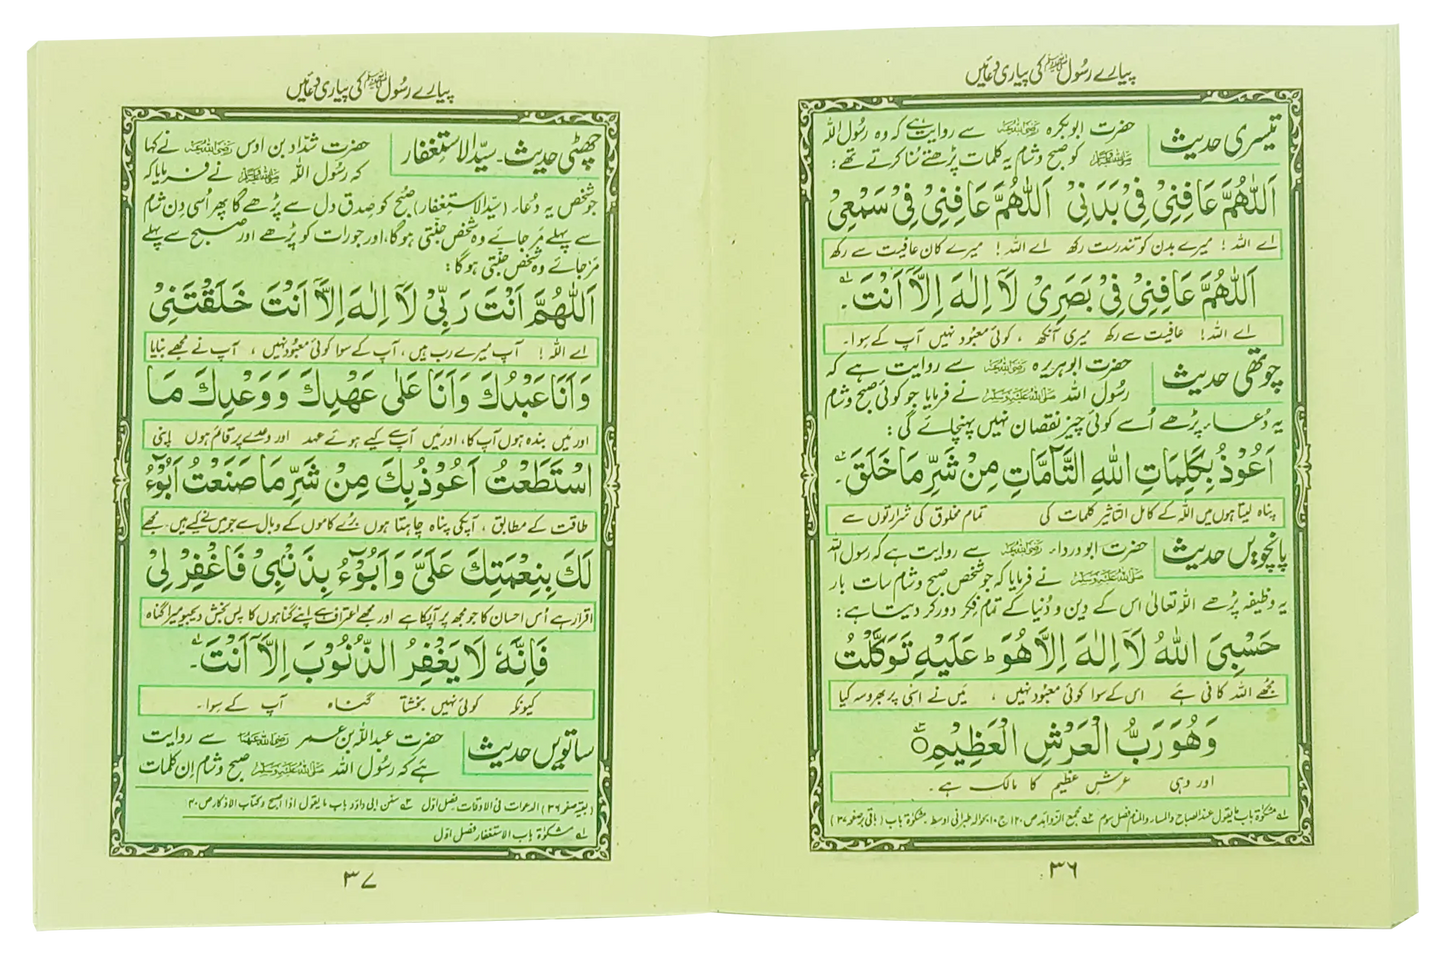 پیارے رسُول ﷺ کی پیاری دُعائیں
تیسری حدیث
حضرت ابوبکرہ رضی اللہ عنہ سے روایت ہے کہ وہ رسول اللہ
ﷺ کو صبح و شام یہ کلمات پڑھتے سُنا کرتے تھے :
اَللّٰهُمَّ عَافِنِيْ فِيْ بَدَنِيْ اَللّٰهُمَّ عَافِنِيْ فِيْ سَمْعِيْ
اے اللہ ! میرے بدن کو تندرست رکھ اے اللہ ! میرے کان عافیت سے رکھ
اَللّٰهُمَّ عَافِنِيْ فِيْ بَصَرِيْ لَآ اِلٰهَ اِلَّآ اَنْتَ۔
اے اللہ! عافیت سے رکھ میری آنکھ ، کوئی معبُود نہیں آپ کے سوا۔
چوتھی حدیث
حضرت ابوہریرہ رضی اللہ عنہ سے روایت ہے کہ
رسُول اللہ ﷺ نے فرمایا جو کوئی صبح و شام
یہ دُعاء پڑھے اُسے کوئی چیز نقصان نہیں پہنچائے گی :
اَعُوْذُ بِكَلِمَاتِ اللهِ التَّآمَّاتِ مِنْ شَرِّ مَا خَلَقَ۔
پناہ لیتا ہوں میں اللہ کے کامل التاثیر کلمات کی تمام مخلوق کی شرارتوں سے
پانچویں حدیث
حضرت ابودرداء رضی اللہ عنہ سے روایت ہے کہ رسول اللہ
ﷺ نے فرمایا کہ جو شخص صبح و شام سات بار
یہ وظیفہ پڑھے اللہ تعالیٰ اس کے دین و دُنیا کے تمام فِکر دور کر دیتا ہے :
حَسْبِيَ اللهُ لَآ اِلٰهَ اِلَّا هُوَ ط عَلَيْهِ تَوَكَّلْتُ
مجھے اللہ کافی ہے اس کے سوا کوئی معبُود نہیں ، میں نے اسی پر بھروسہ کیا
وَهُوَ رَبُّ الْعَرْشِ الْعَظِيْمِ
اور وہی عرشِ عظیم کا مالک ہے۔
لہ مشکوٰۃ باب مایقول عندالصباح والمساء والمنام فصل سوم ٢ مجمع الزوائد ص ١٢٠ ج ١٠ بحوالہ طبرانی اوسط مشکوٰۃ باب (باقی برصفحہ ٣٧)
٣٦
پیارے رسُول ﷺ کی پیاری دُعائیں
چھٹی حدیث۔ سیّد الاستغفار
حضرت شدّاد بن اوس رضی اللہ عنہ نے کہا
کہ رسُول اللہ ﷺ نے فرمایا کہ
جو شخص یہ دُعاء (سیّدالاستغفار) صبُح کو صِدق دل سے پڑھے گا پھر اُسی دِن شام
سے پہلے مَر جائے وہ شخص جنّتی ہوگا، اور جو رات کو پڑھے اور صبح سے پہلے
مَر جائے وہ شخص جنّتی ہوگا :
اَللّٰهُمَّ اَنْتَ رَبِّيْ لَآ اِلٰهَ اِلَّآ اَنْتَ خَلَقْتَنِيْ
اے اللہ ! آپ میرے رب ہیں ، آپ کے سوا کوئی معبُود نہیں ، آپ نے مجھے بنایا
وَاَنَا عَبْدُكَ وَاَنَا عَلٰى عَهْدِكَ وَوَعْدِكَ مَا
اور میں بندہ ہوں آپ کا ، اور میں آپ سے کیے ہوئے عہد اور وعدے پر قائم ہوں اپنی
اسْتَطَعْتُ اَعُوْذُ بِكَ مِنْ شَرِّ مَا صَنَعْتُ اَبُوْٓءُ
طاقت کے مطابق ، آپکی پناہ چاہتا ہوں بُرے کاموں کے وبال سے جو میں نے کیے ہیں۔ مجھے
لَكَ بِنِعْمَتِكَ عَلَيَّ وَاَبُوْٓءُ بِذَنْبِيْ فَاغْفِرْ لِيْ
اقرار ہے اُس احسان کا جو مجھ پر آپکا ہے اور مجھے اعتراف ہے اپنے گناہوں کا پس بخش دیجیو میرا گناہ
فَاِنَّهٗ لَا يَغْفِرُ الذُّنُوْبَ اِلَّآ اَنْتَ۔
کیونکہ کوئی نہیں بخشتا گناہ آپ کے سوا۔
ساتویں حدیث
حضرت عبداللہ بن عمر رضی اللہ عنہما سے روایت
ہے کہ رسُول اللہ ﷺ صبح و شام اِن کلمات
(بقیہ صفحہ ٣٦) الدعوات فی الاوقات فصل اوّل سنن ابی داود باب مایقول اذا اصبح وکتاب الاذکار ص ٣٠
لہ مشکوٰۃ باب الاستغفار فصل اوّل
٣٧